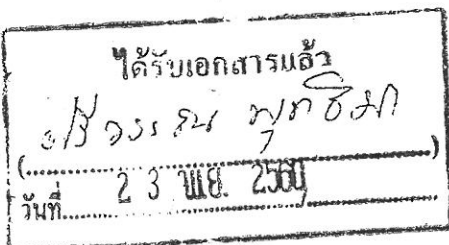 ได้รับเอกสารแล้ว
(..............................)
วันที่ 23 พ.ย. 2560